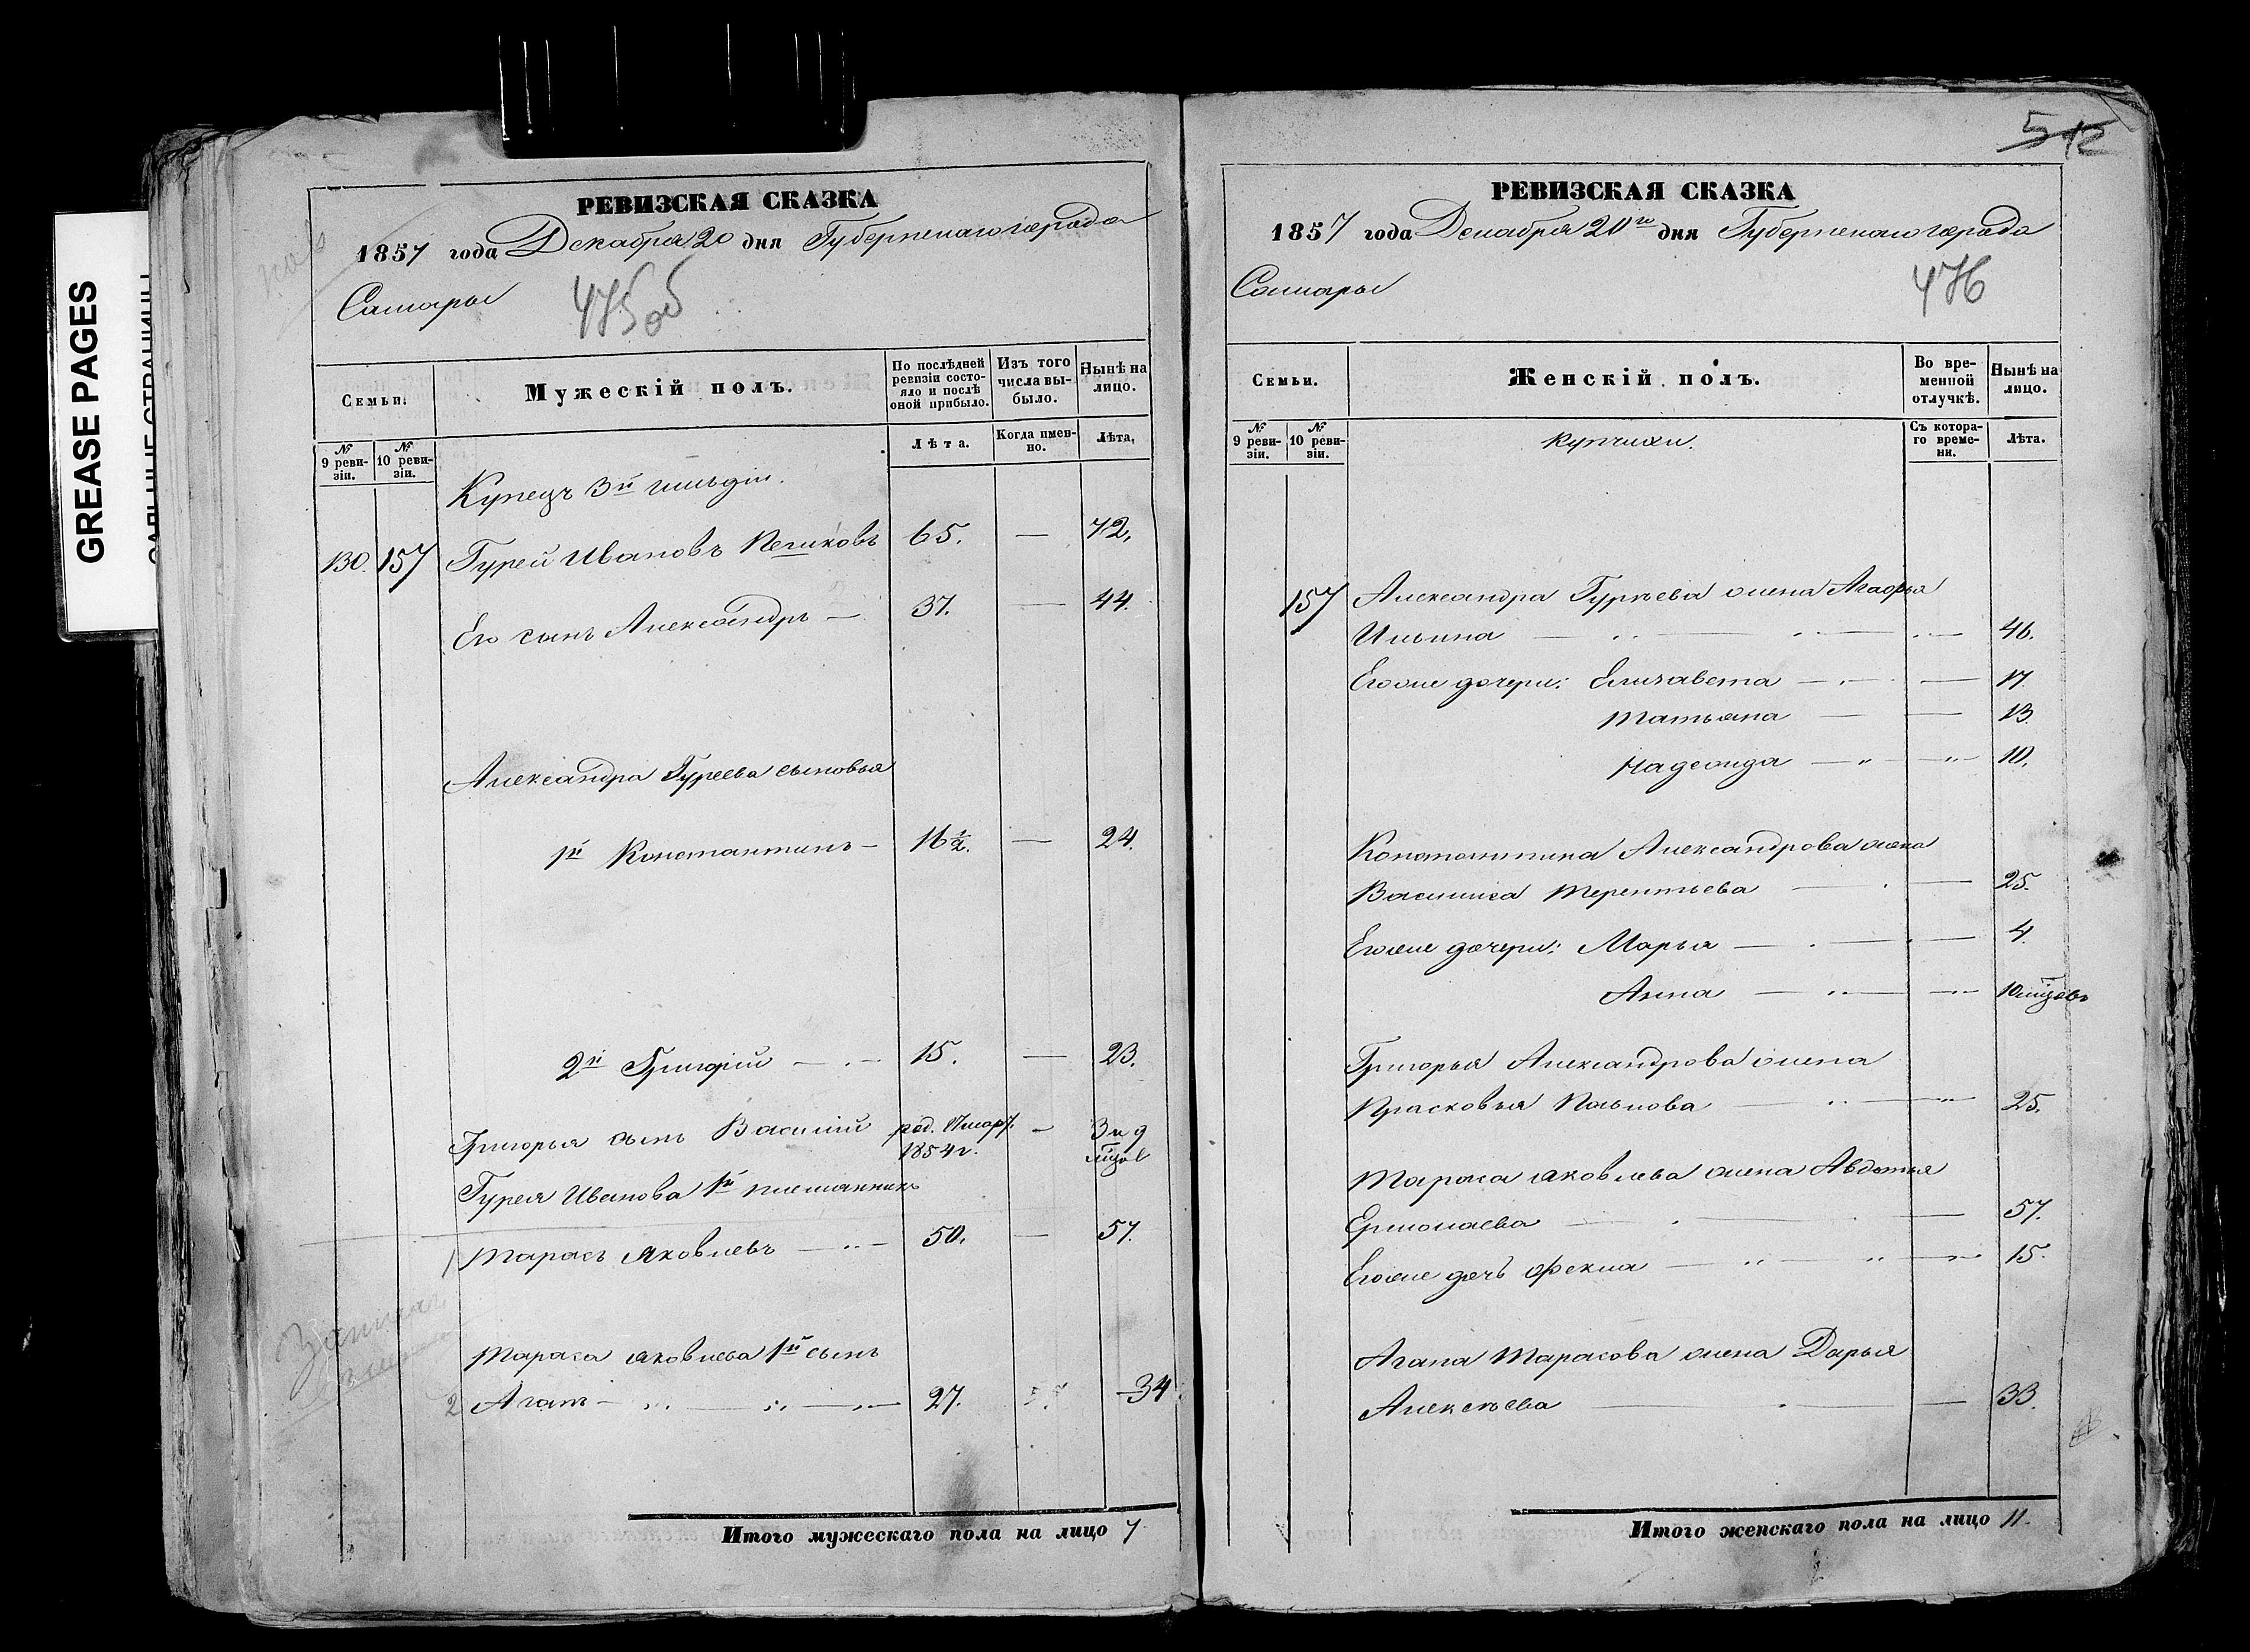 GREASE PAGES
РЕВИЗСКАЯ СКАЗКА
1857 года Декабря 20 дня Губернскаго города
Самары
475об
Семьи.
Мужескій полъ.
По послѣдней ревизіи состояло и послѣ оной прибыло.
Изъ того числа выбыло.
Нынѣ на лицо.
№ 9 ревизіи.
№ 10 ревизіи.
Лѣта.
Когда именно.
Лѣта,
Купецъ 3й гильдіи.
130. 157 Гурей Ивановъ 65. — 72.
Его сынъ Александръ — 37. — 44.
Александра Гурьева сыновья
1й Константинъ — 16½. — 24.
2й Григорій — 15. — 23.
Григорья сынъ Василій род. март. 1854г. — 3 и 9 мѣсов
Гурея Иванова 1й племянникъ
1 Тарасъ Яковлевъ — 50. — 57.
Тараса Яковлева 1й сынъ
2 Агапъ — 27. 34
Итого мужескаго пола на лицо 7
512
РЕВИЗСКАЯ СКАЗКА
1857 года Декабря 20го дня Губернскаго города
Самары
476
Семьи.
Женскій полъ.
Во временной отлучкѣ.
Нынѣ на лицо.
№ 9 ревизіи.
№ 10 ревизіи.
Купчихи.
Съ котораго времени.
Лѣта.
157 Александра Гурьева жена
Ильина — 46.
Его же дочери: Елизавета — 17.
Татьяна — 13
Надежда — 10.
Константина Александрова жена
Василиса Терентьева — 25.
Его же дочери: Марья — 4.
Анна — 10 мѣсяцовъ
Григорья Александрова жена
Прасковья — 25.
Тараса Яковлева жена Авдотья
Ермолаева — 57.
Его же дочь Фекла — 15.
Агапа Тарасова жена Дарья
Алексѣева — 33.
Итого женскаго пола на лицо 11.